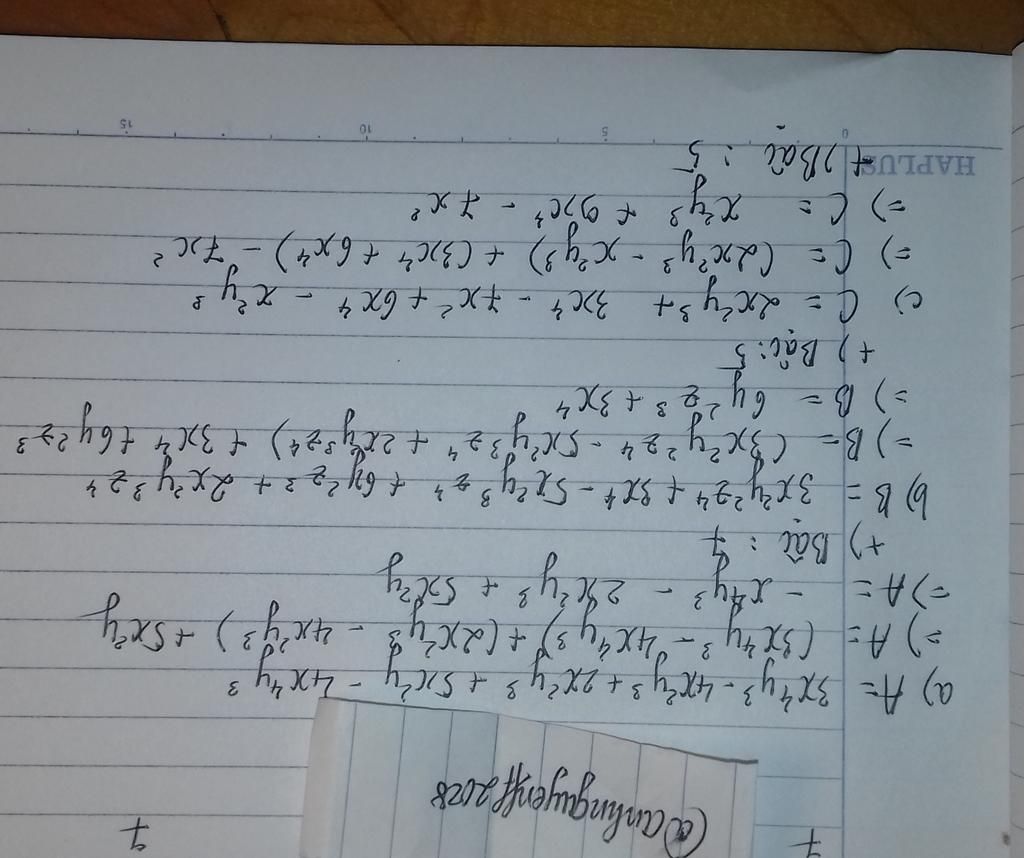 7 7
@anhnguyenff2028
a) A = 3x⁴y³ - 4x²y³ + 2x²y³ + 5x²y - 4x⁴y³
=) A = (3x⁴y³ - 4x⁴y³) + (2x²y³ - 4x²y³) + 5x²y
=) A = - x⁴y³ - 2x²y³ + 5x²y
+) Bậc : 7
b) B = 3x²y²z⁴ + 3x⁴ - 5x²y³z⁴ + 6y²z³ + 2x²y³z⁴
=) B = (3x²y²z⁴ - 5x²y³z⁴ + 2x²y³z⁴) + 3x⁴ + 6y²z³
=) B = 6y²z³ + 3x⁴
+) Bậc : 5
c) C = 2x²y³ + 3x⁴ - 7x² + 6x⁴ - x²y³
=) C = (2x²y³ - x²y³) + (3x⁴ + 6x⁴) - 7x²
=) C = x²y³ + 9x⁴ - 7x²
+) Bậc : 5
HAPLUS 0 5 10 15